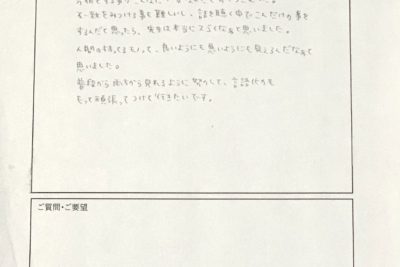 不一致を見つける事も難しいし、話を聴く中でこんだけの事を
するんだと思ったら、先生は本当にスゴくなぁと思いました。
人間の持ってるモノって、良いようにも悪いようにも見えるんだなぁと
思いました。
普段から両方から見れるように努力して、言語化力も
もっと頑張ってつけて行きたいです。
ご質問・ご要望